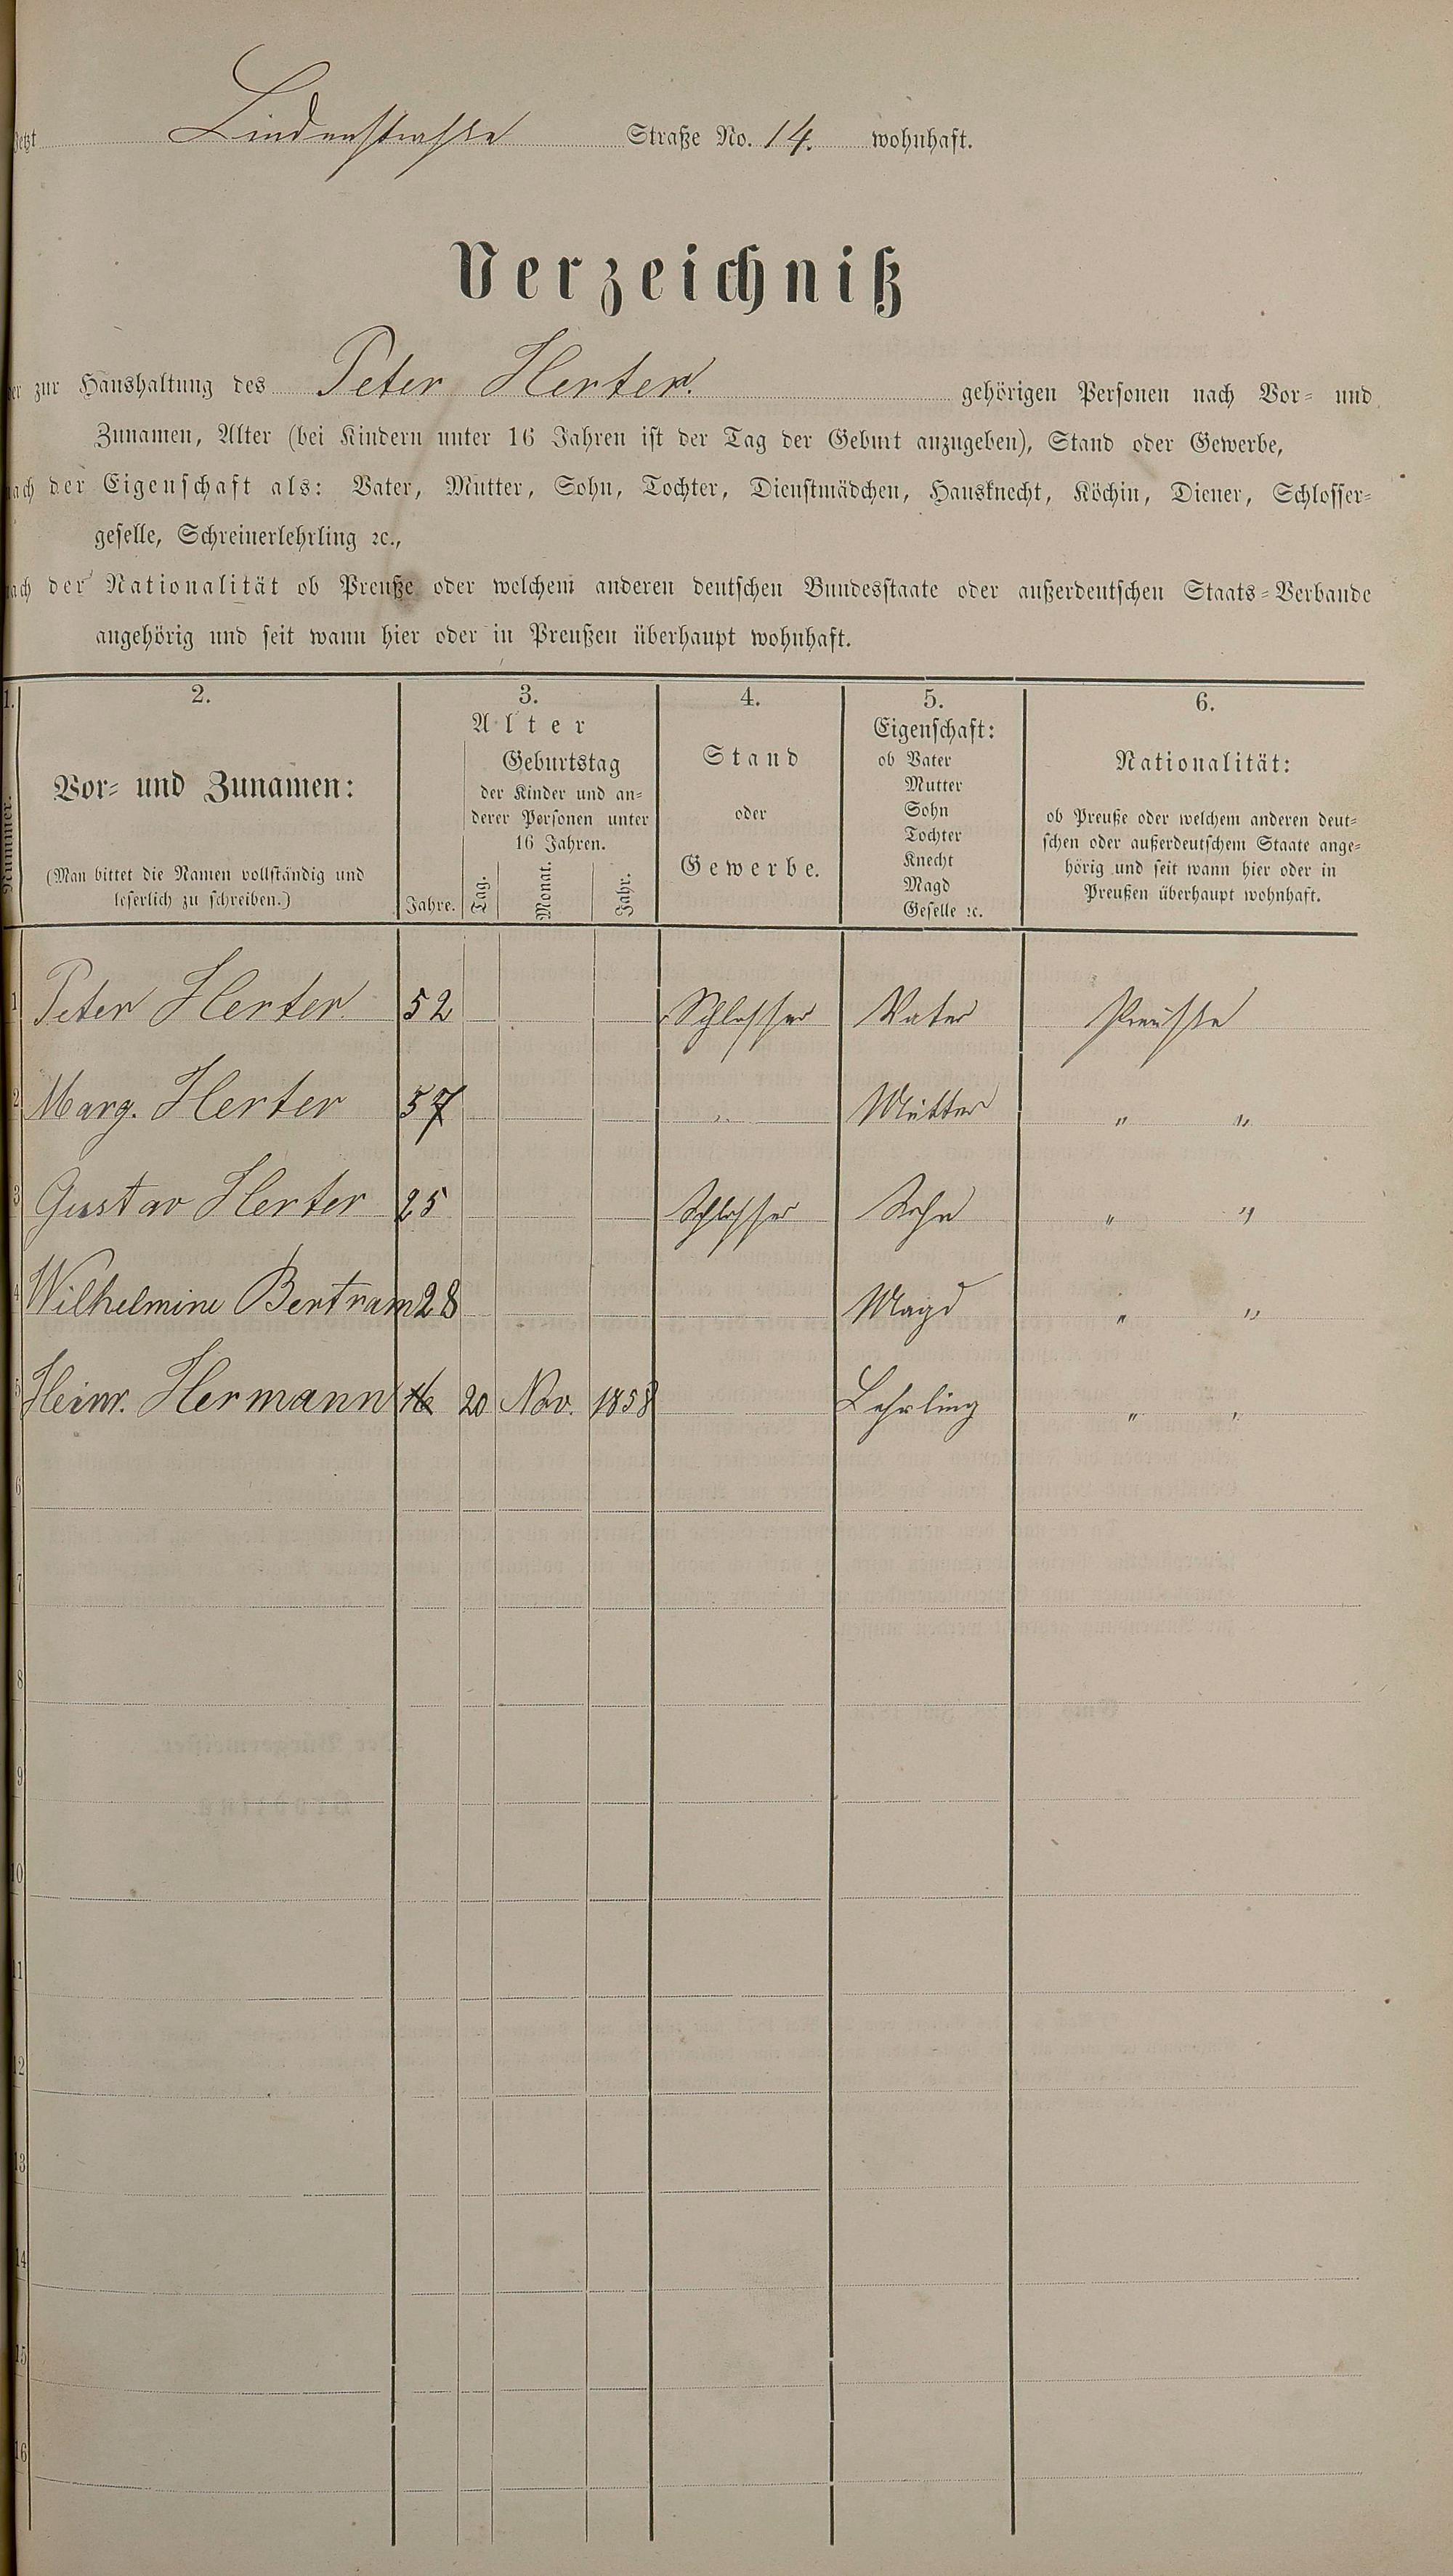 Jetzt Lindenstraße Straße No. 14. wohnhaft.
Verzeichniß
der zur Haushaltung des Peter Herter. gehörigen Personen nach Vor- und
Zunamen, Alter (bei Kindern unter 16 Jahren ist der Tag der Geburt anzugeben), Stand oder Gewerbe,
nach der Eigenschaft als: Vater, Mutter, Sohn, Tochter, Dienstmädchen, Hausknecht, Köchin, Diener, Schlosser-
geselle, Schreinerlehrling ꝛc.,
nach der Nationalität ob Preuße oder welchem anderen deutschen Bundesstaate oder außerdeutschen Staats-Verbande
angehörig und seit wann hier oder in Preußen überhaupt wohnhaft.
1.
Nummer.
2.
Vor- und Zunamen:
(Man bittet die Namen vollständig und
leserlich zu schreiben.)
3.
Alter
Jahre.
Geburtstag
der Kinder und an-
derer Personen unter
16 Jahren.
Tag.
Monat.
Jahr.
4.
Stand
oder
Gewerbe.
5.
Eigenschaft:
ob Vater
Mutter
Sohn
Tochter
Knecht
Magd
Geselle ꝛc.
6.
Nationalität:
ob Preuße oder welchem anderen deut-
schen oder außerdeutschem Staate ange-
hörig und seit wann hier oder in
Preußen überhaupt wohnhaft.
1 Peter Herter 52 Schlosser Vater Preuße
2 Marg. Herter 57 " Mutter " "
3 Gustav Herter 25 Schlosser Sohn " "
4 Wilhelmine Bertram 28 Magd " "
5 Heinr. Hermann 16 20 Nov. 1858 Lehrling " "
6
7
8
9
10
11
12
13
14
15
16